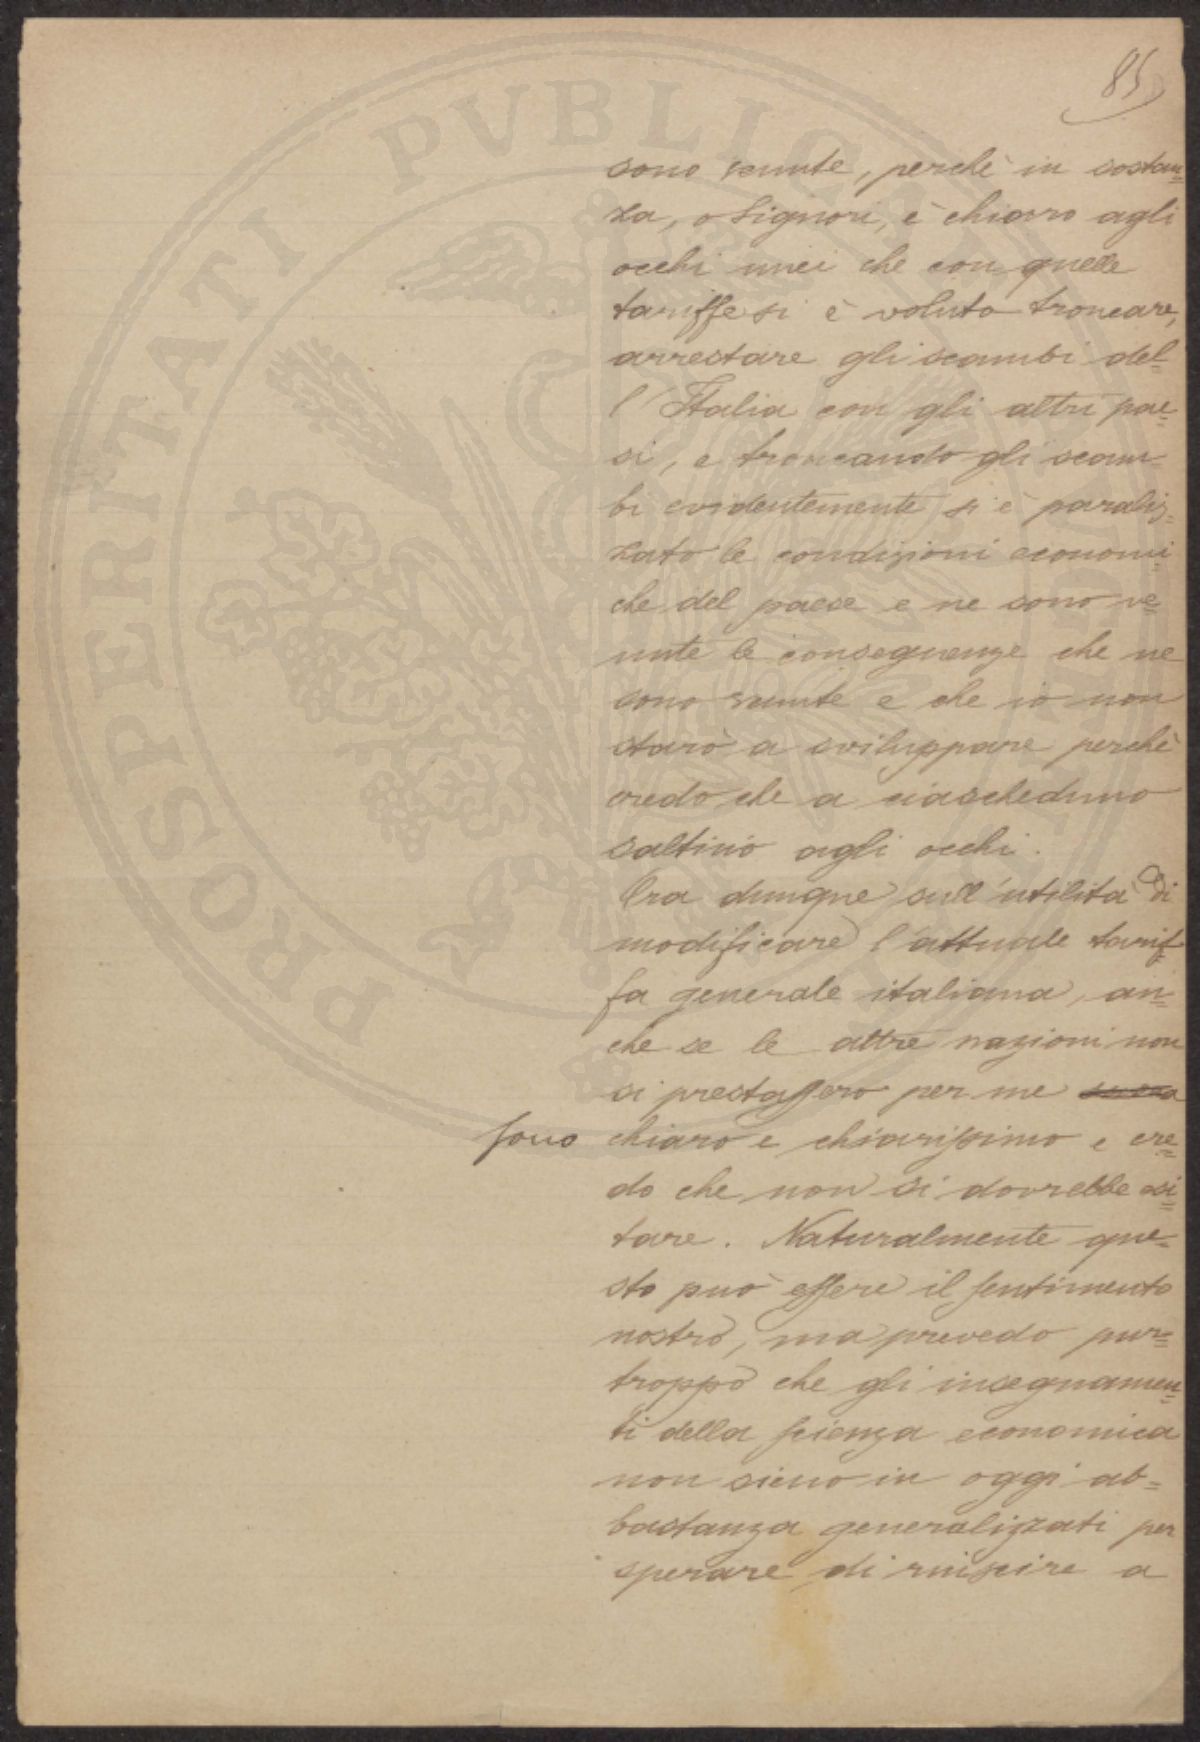 85
sono venute, perchè in sostan=
za, o Signori, è chiaro agli
occhi miei che con quelle
tariffe si è voluto troncare,
arrestare gli scambi del=
l'Italia con gli altri pae=
si, e troncando gli scam=
bi evidentemente si è paraliz=
zato le condizioni economi=
che del paese e ne sono ve=
nute le conseguenze che ne
sono venute e che io non
starò a sviluppare perchè
credo che a ciascheduno
saltino agli occhi.
Ora dunque sull'utilità di
modificare l'attuale tarif=
fa generale italiana, an=
che se le altre nazioni non
si prestassero per me
sono chiaro e chiarissimo e cre=
do che non si dovrebbe esi=
tare. Naturalmente que=
sto può essere il sentimento
nostro, ma prevedo pur=
troppo che gli insegnamen=
ti della scienza economica
non sieno in oggi ab=
bastanza generalizzati per
sperare di riuscire a
PROSPERITATI PVBLICAE